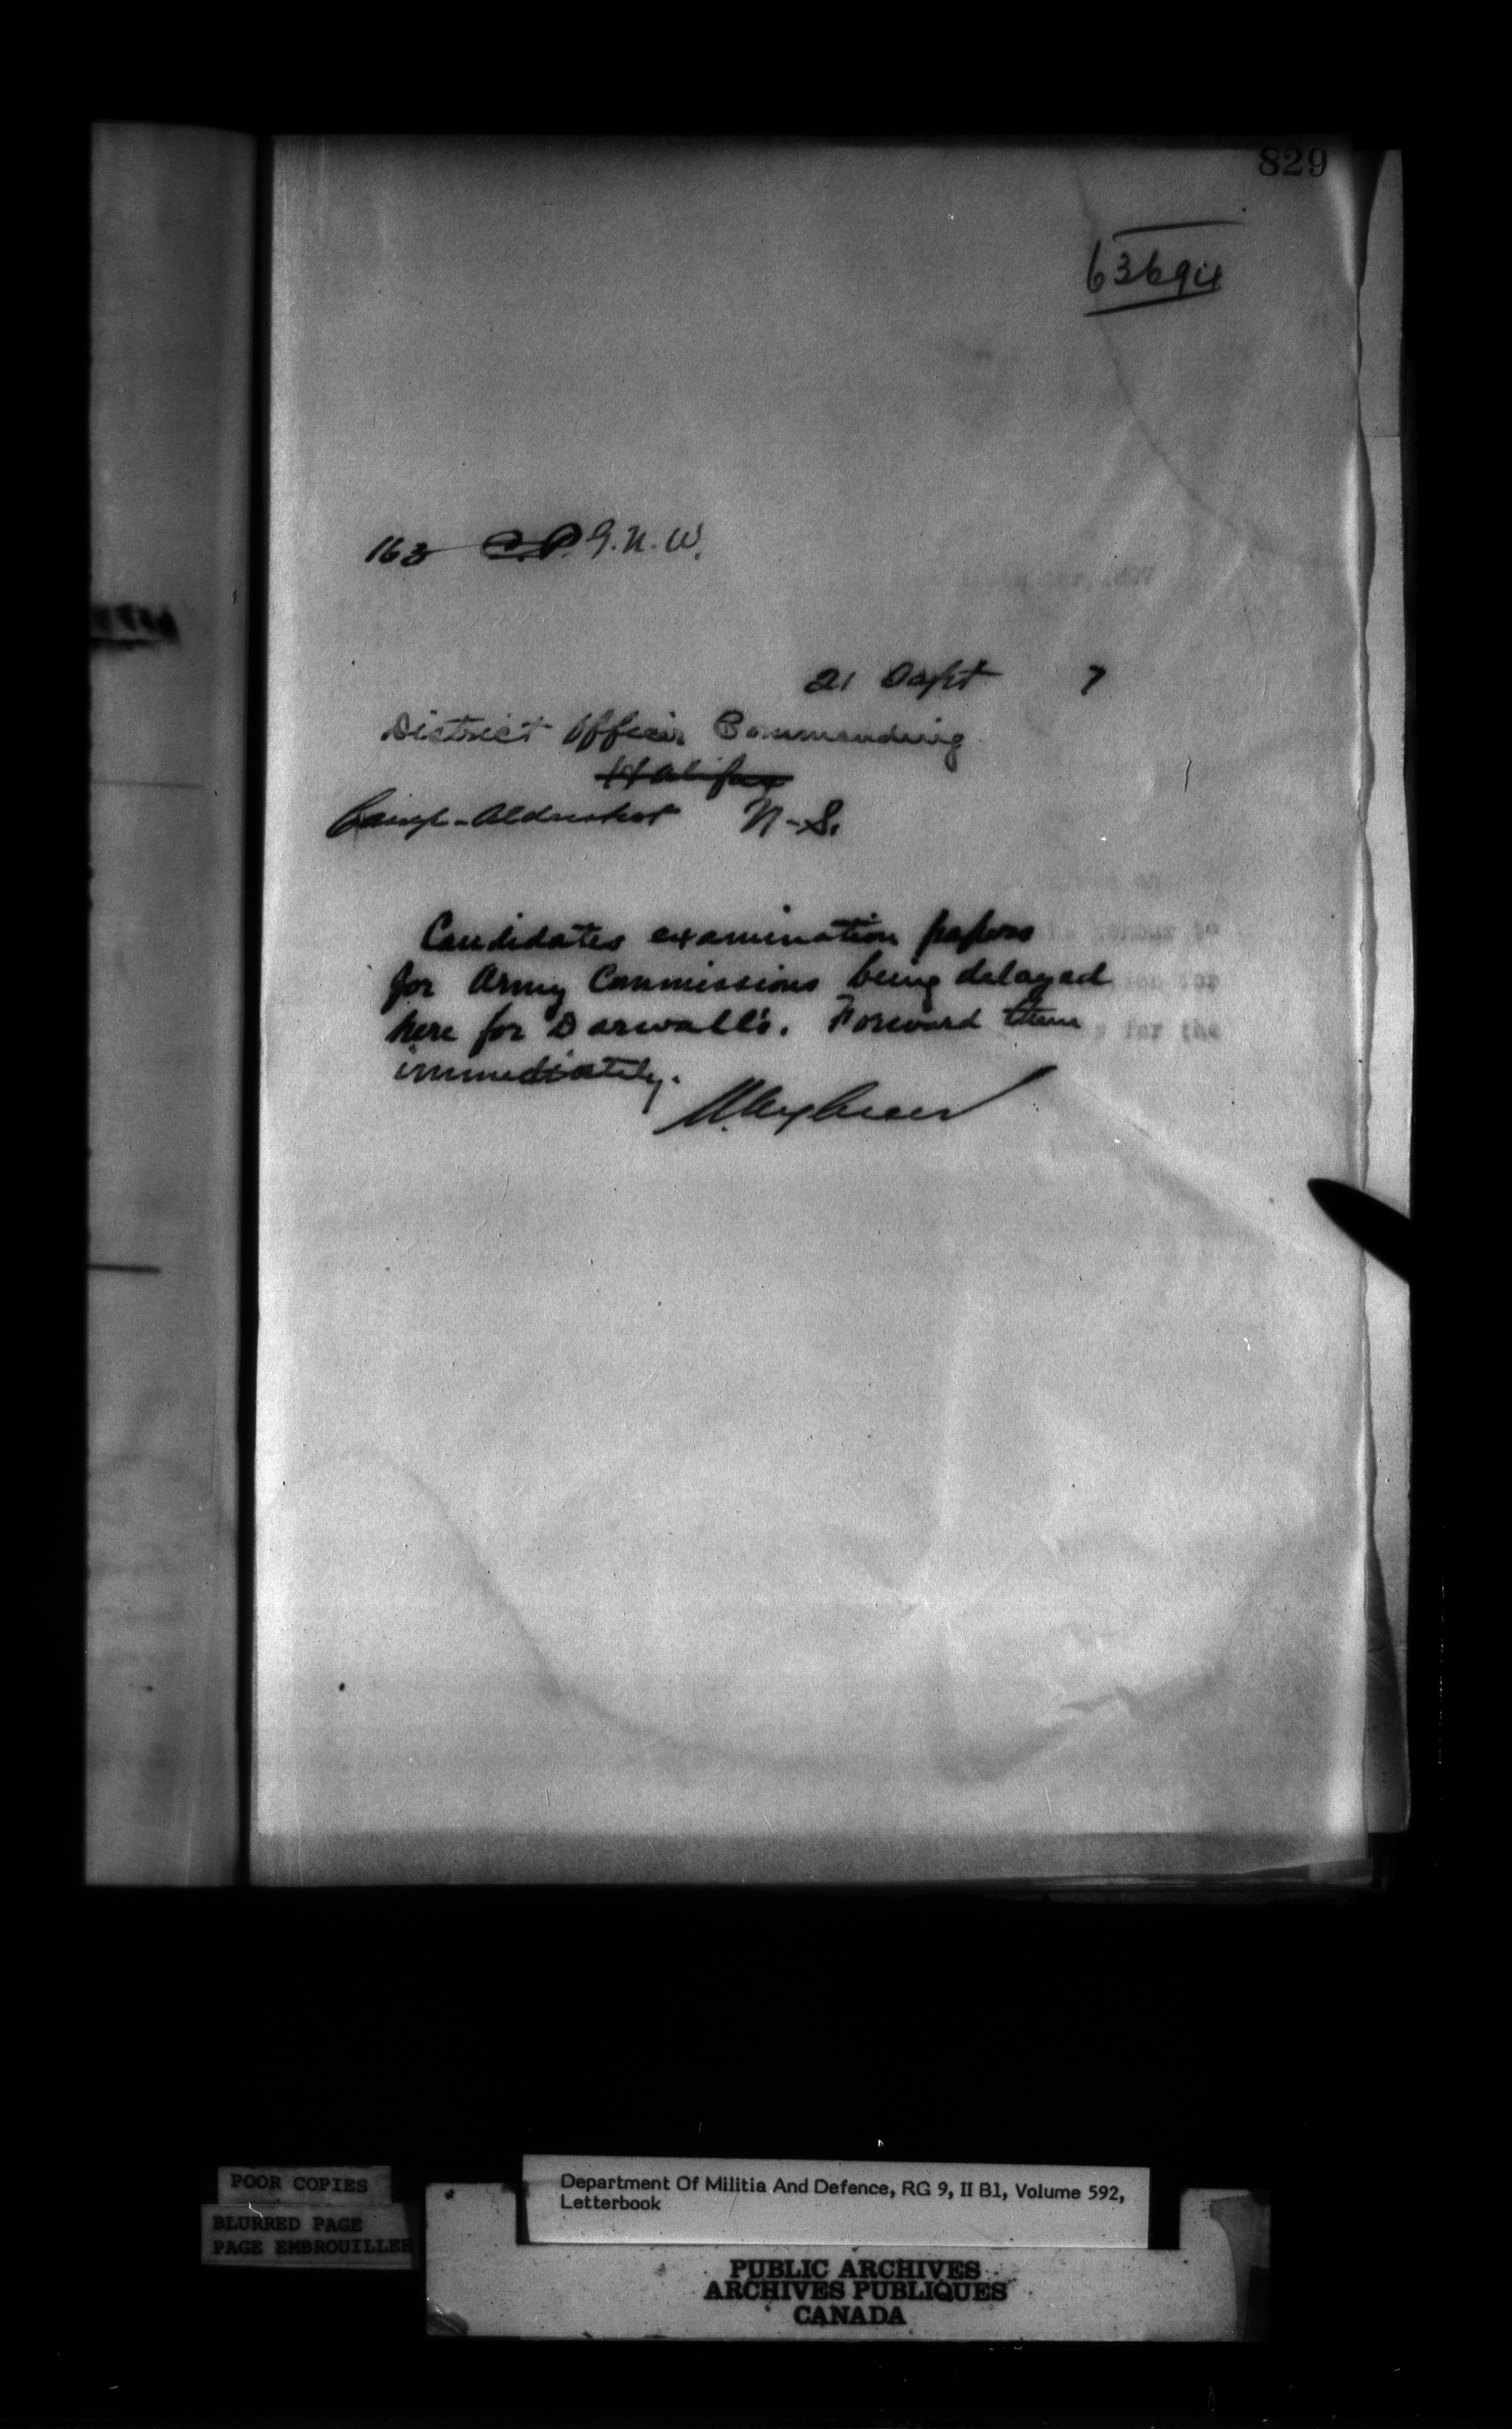 829
63694
163 C.P. G.N.W.
21 Sept 7
District Officer Commanding
Halifax
Camp-Aldershot N-S.
Candidates examination papers
for Army Commissions being delayed
here for Darwall's. Forward them
immediately.
POOR COPIES
BLURRED PAGE
PAGE EMBROUILLEE
Department Of Militia And Defence, RG 9, II B1, Volume 592,
Letterbook
PUBLIC ARCHIVES
ARCHIVES PUBLIQUES
CANADA